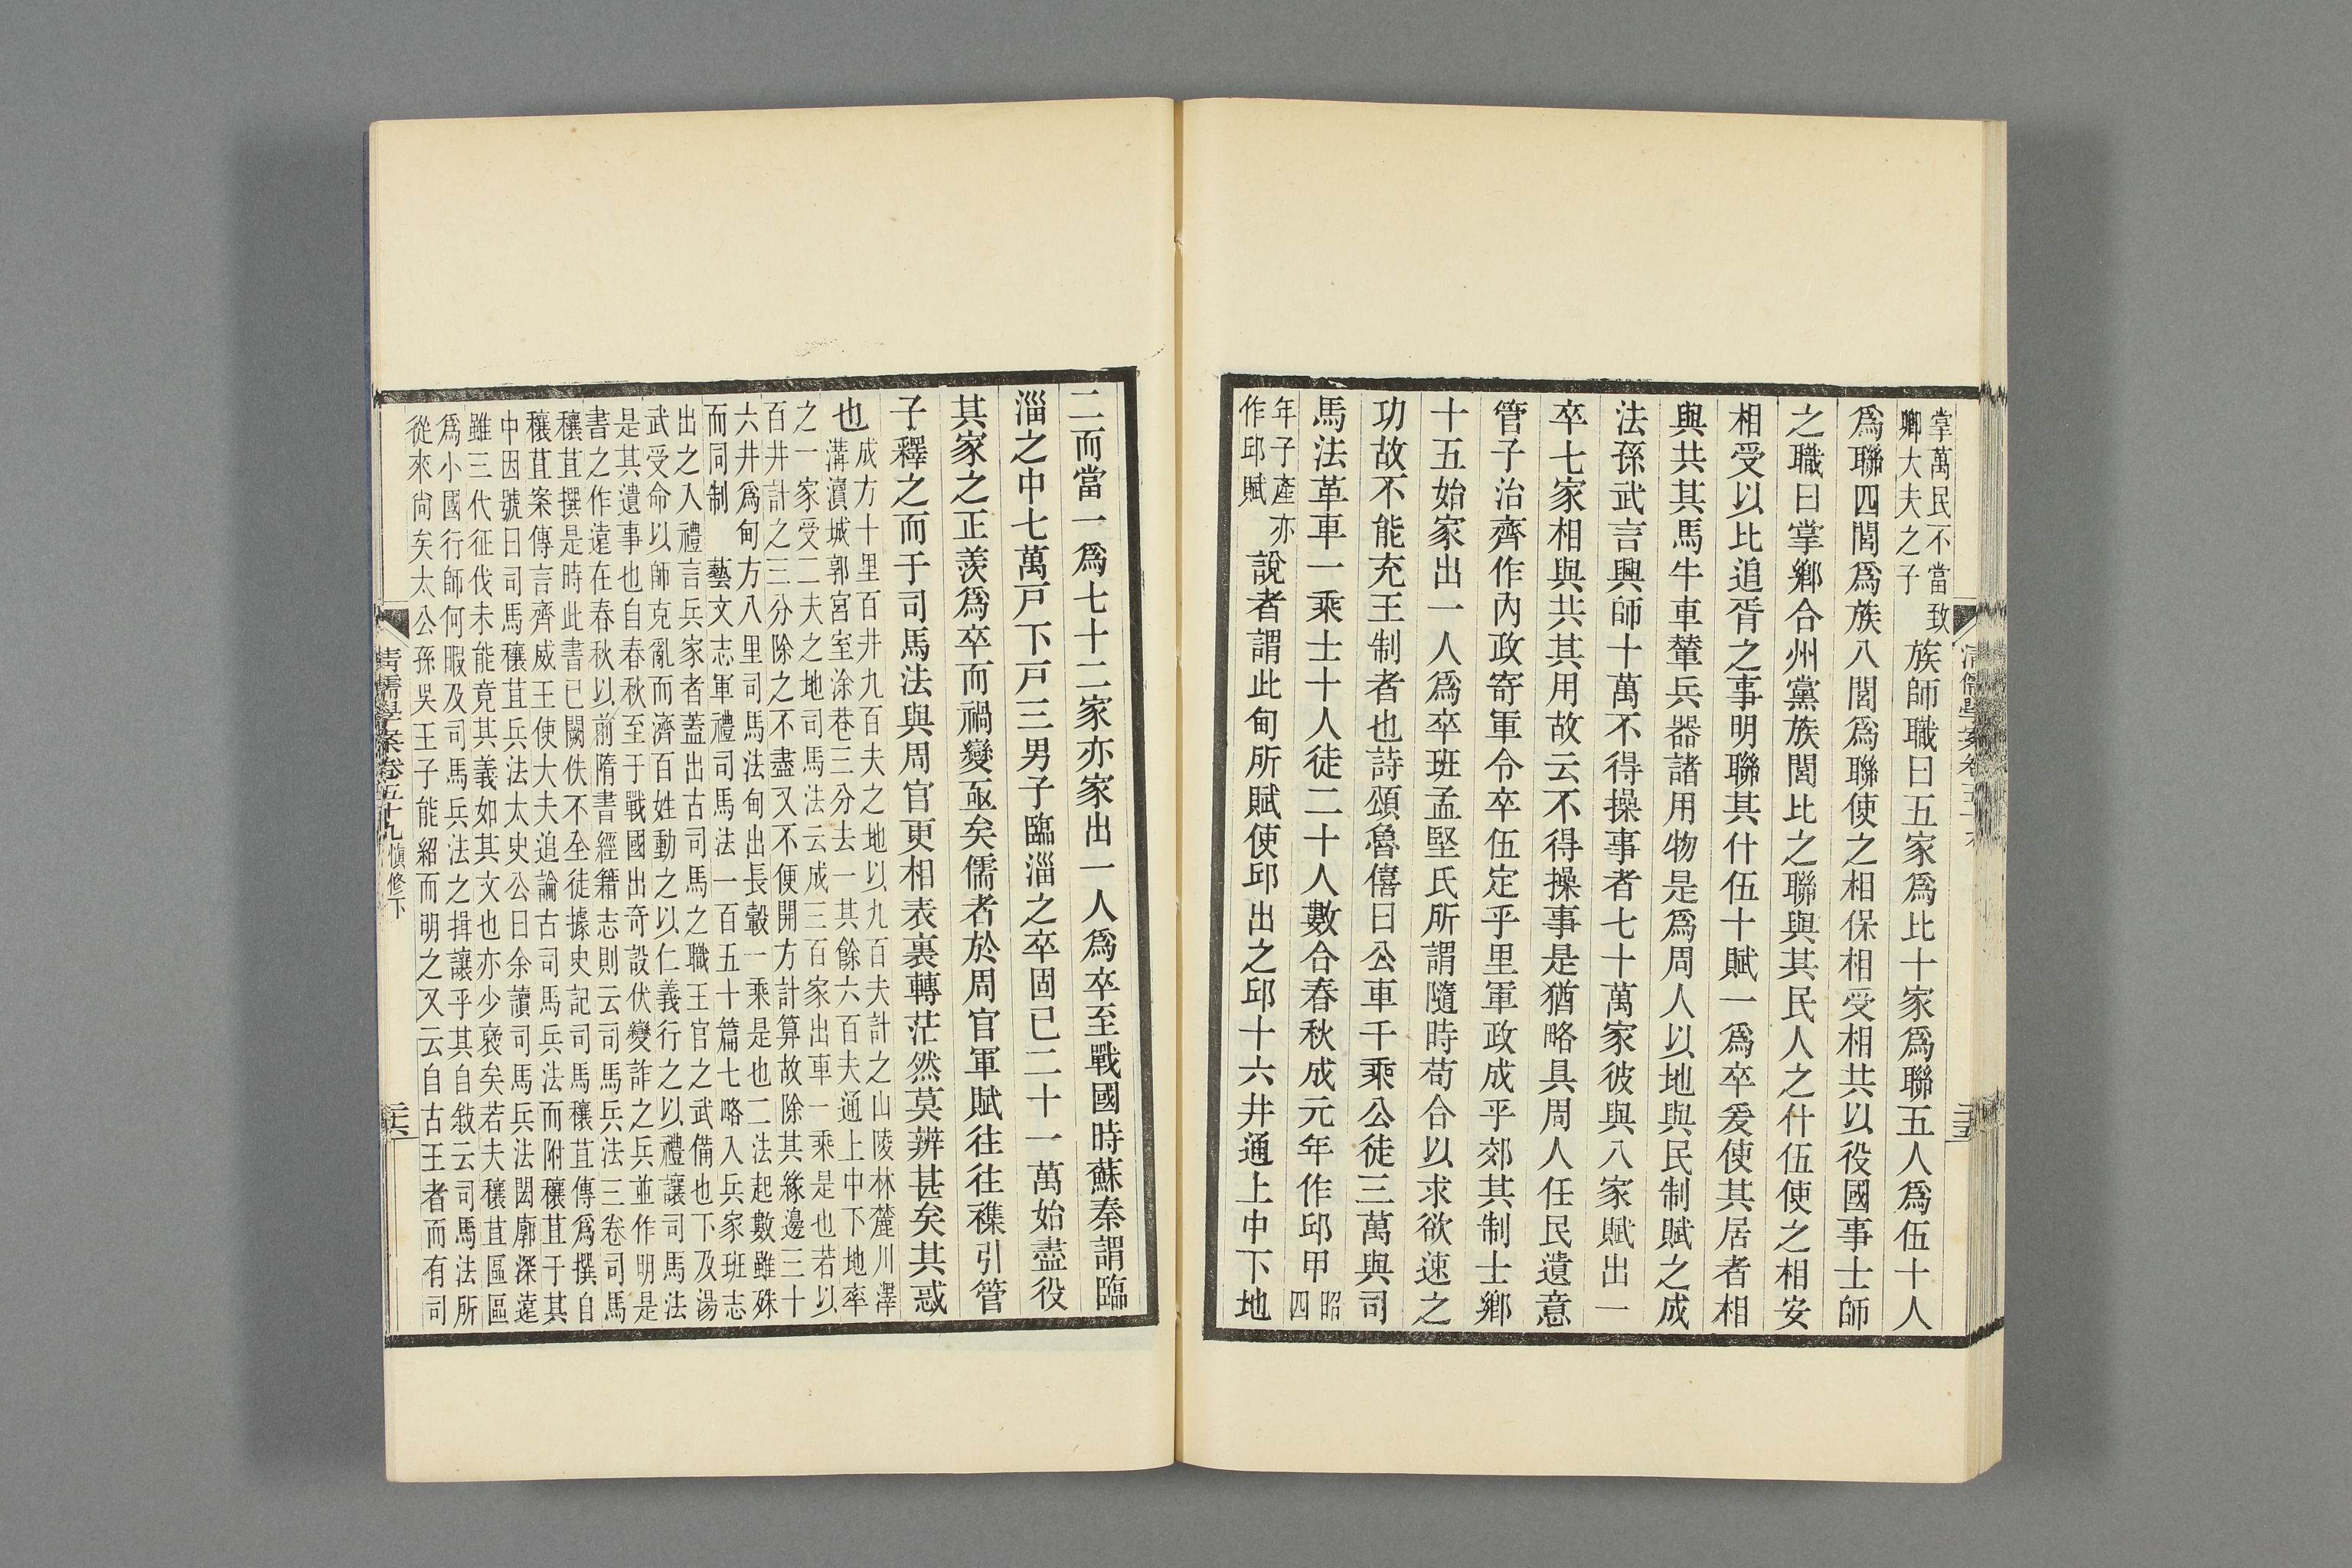 掌萬民不當致
卿大夫之子
族師職曰五家爲比十家爲聯五人爲伍十人
爲聯四閭爲族八閭爲聯使之相保相受相共以役國事士師
之職曰掌鄉合州黨族閭比之聯與其民人之什伍使之相安
相受以比追胥之事明聯其什伍十賦一爲卒爰使其居者相
與共其馬牛車輦兵器諸用物是爲周人以地與民制賦之成
法孫武言興師十萬不得操事者七十萬家彼與八家賦出一
卒七家相與共其用故云不得操事是猶略具周人任民遺意
管子治齊作內政寄軍令卒伍定乎里軍政成乎郊其制士鄉
十五始家出一人爲卒班孟堅氏所謂隨時苟合以求欲速之
功故不能充王制者也詩頌魯僖曰公車千乘公徒三萬與司
馬法革車一乘士十人徒二十人數合春秋成元年作邱甲
昭四
年子產亦
作邱賦
說者謂此甸所賦使邱出之邱十六井通上中下地
清儒學案卷五十九
二而當一爲七十二家亦家出一人爲卒至戰國時蘇秦謂臨
淄之中七萬戸下戸三男子臨淄之卒固已二十一萬始盡役
其家之正羨爲卒而禍變亟矣儒者於周官軍賦往往襍引管
子釋之而于司馬法與周官更相表裏轉茫然莫辨甚矣其惑
也
成方十里百井九百夫之地以九百夫計之山陵林麓川澤
溝瀆城郭宮室涂巷三分去一其餘六百夫通上中下地率
之一家受二夫之地司馬法云成三百家出車一乘是也若以
百井計之三分除之不盡又不便開方計算故除其緣邊三十
六井爲甸方八里司馬法甸出長轂一乘是也二法起數雖殊
而同制　藝文志軍禮司馬法一百五十篇七略入兵家班志
出之入禮言兵家者蓋出古司馬之職王官之武備也下及湯
武受命以師克亂而濟百姓動之以仁義行之以禮讓司馬法
是其遺事也自春秋至于戰國出奇設伏變詐之兵並作明是
書之作遠在春秋以前隋書經籍志則云司馬兵法三卷司馬
穰苴撰是時此書已闕佚不全徒據史記司馬穰苴傳爲撰自
穰苴案傳言齊威王使大夫追論古司馬兵法而附穰苴于其
中因號曰司馬穰苴兵法太史公曰余讀司馬兵法閎廓深遠
雖三代征伐未能竟其義如其文也亦少襃矣若夫穰苴區區
爲小國行師何暇及司馬兵法之揖讓乎其自敍云司馬法所
從來尚矣太公孫吳王子能紹而明之又云自古王者而有司
清儒學案卷五十九慎修下